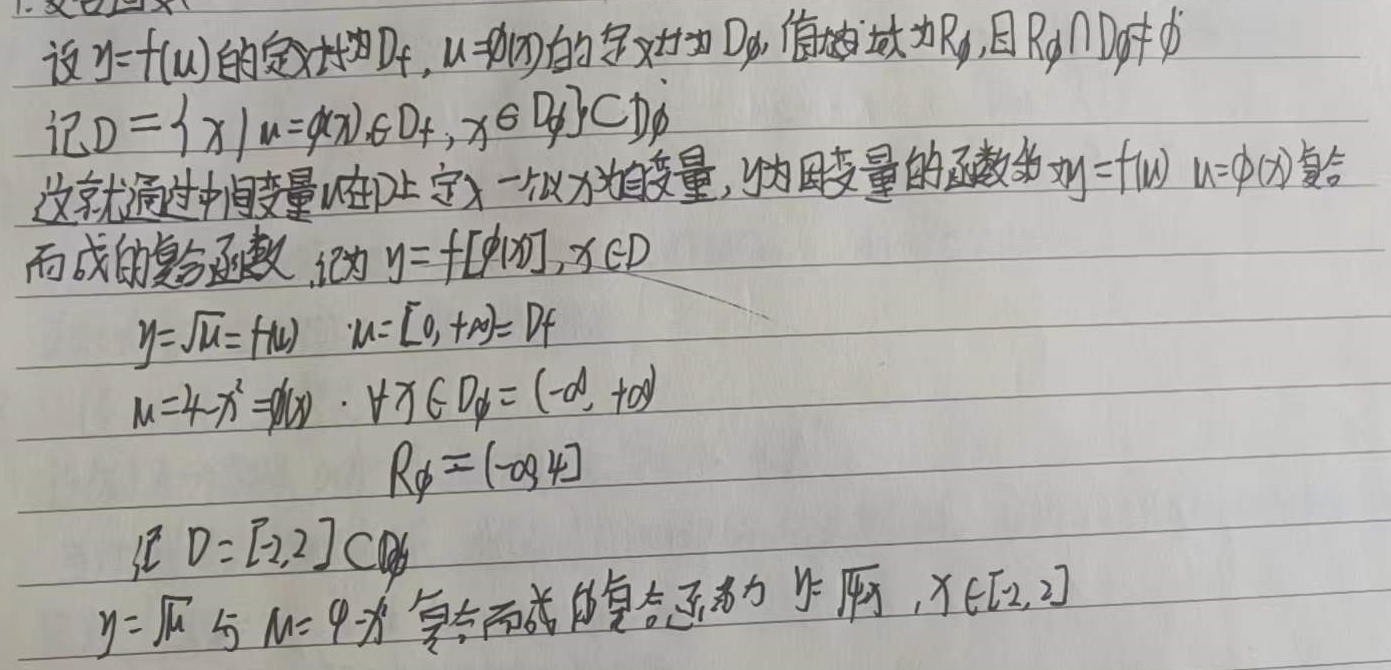 1.复合函数
设 y=f(u)的定义域为Df, u=φ(x)的定义域为Dφ, 值域为Rφ,且Rφ∩Dφ≠ϕ
记D={x|u=φ(x)∈Df, x∈Dφ}⊂Dφ
这就通过中间变量u在D上定义一个以x为自变量,y为因变量的函数 y=f(u) u=φ(x)复合
而成的复合函数,记为 y=f[φ(x)], x∈D
y=√u=f(u) u=[0,+∞)=Df
u=4-x²=φ(x) ∀x∈Dφ=(-∞,+∞)
Rφ=(-∞,4]
记 D=[-2,2]⊂Dφ
y=√u 与 u=4-x² 复合而成的复合函数为 y=√4-x², x∈[-2,2]